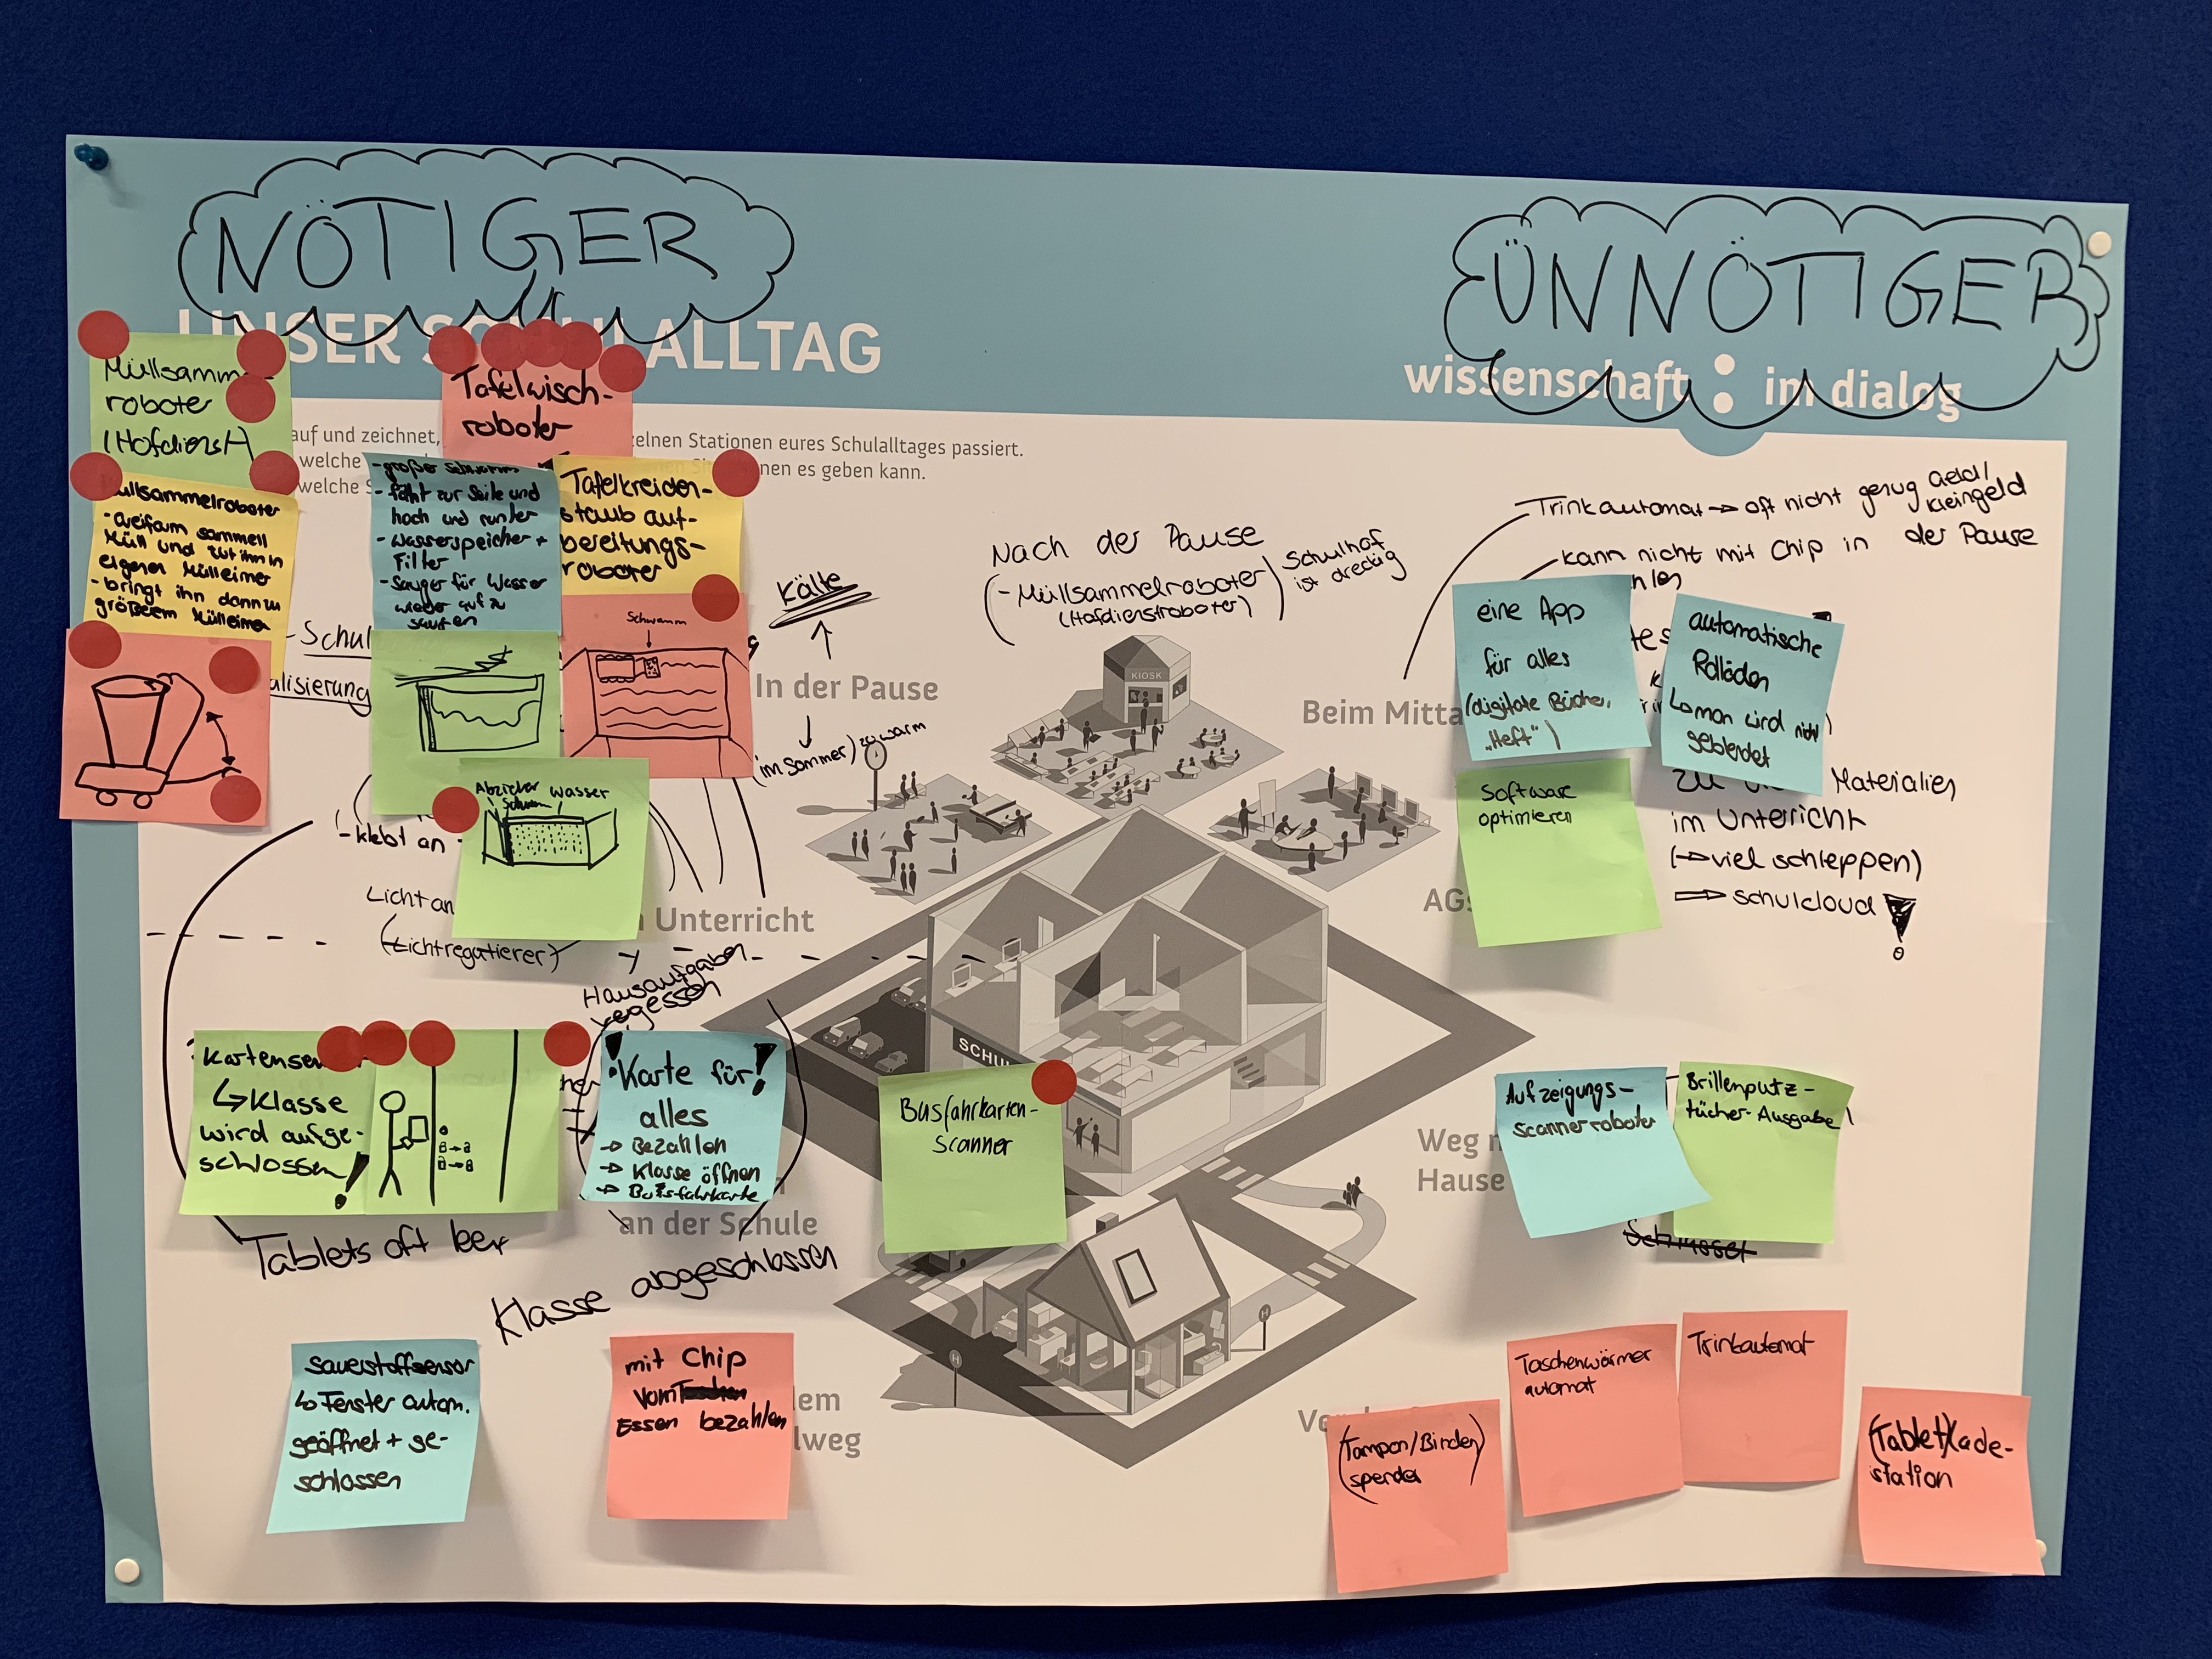 NÖTIGER
ÜNNÖTIGER
UNSER SCHULALLTAG
wissenschaft : im dialog
auf und zeichnet,
zelnen Stationen eures Schulalltages passiert.
welche
nen es geben kann.
welche
Müllsamm-
roboter
(Hofdienst)
Müllsammelroboter
- Greifarm sammelt
Müll und tut ihn in
eigenen Mülleimer
- bringt ihn dann zu
größerem Mülleimer
Tafelwisch-
roboter
- großer Schwamm
- fährt zur Seite und
hoch und runter
- Wasserspeicher +
Filter
- Sauger für Wasser
wieder auf zu
saufen
Tafelkreiden-
staub auf-
bereitungs-
roboter
Schwamm
Abzieher Wasser
Schwamm
- Schul
alisierung
- klebt an
Licht an
(Lichtregulierer)
Unterricht
Kälte
In der Pause
(im Sommer) zu warm
Nach der Pause
(- Müllsammelroboter)
(Hofdienstroboter)
Schulhof
ist dreckig
KIOSK
Beim Mitta
Trinkautomat → oft nicht genug Geld/
Kleingeld
kann nicht mit Chip in der Pause
eine App
für alles
(digitale Bücher,
"Heft")
automatische
Rolläden
↳ man wird nicht
geblendet
Software
optimieren
zu Materialien
im Unterricht
(→ viel schleppen)
⇒ schulcloud !
AGs
Hausaufgaben
vergessen
Kartensen
↳ Klasse
wird aufge-
schlossen !
! Karte für !
alles
→ Bezahlen
→ Klasse öffnen
→ Busfahrkarte
SCHUL
Busfahrkarten-
scanner
Aufzeigungs-
scannerroboter
Brillenputz-
tücher-Ausgabe
Weg n
Hause
Schlüssel
an der Schule
Tablets oft leer
Klasse abgeschlossen
H
H
Sauerstoffsensor
↳ Fenster autom.
geöffnet + ge-
schlossen
mit Chip
vom
Essen bezahlen
dem
lweg
(Tampon/Binden)
spender
Taschenwärmer
automat
Trinkautomat
(Tablet)lade-
station